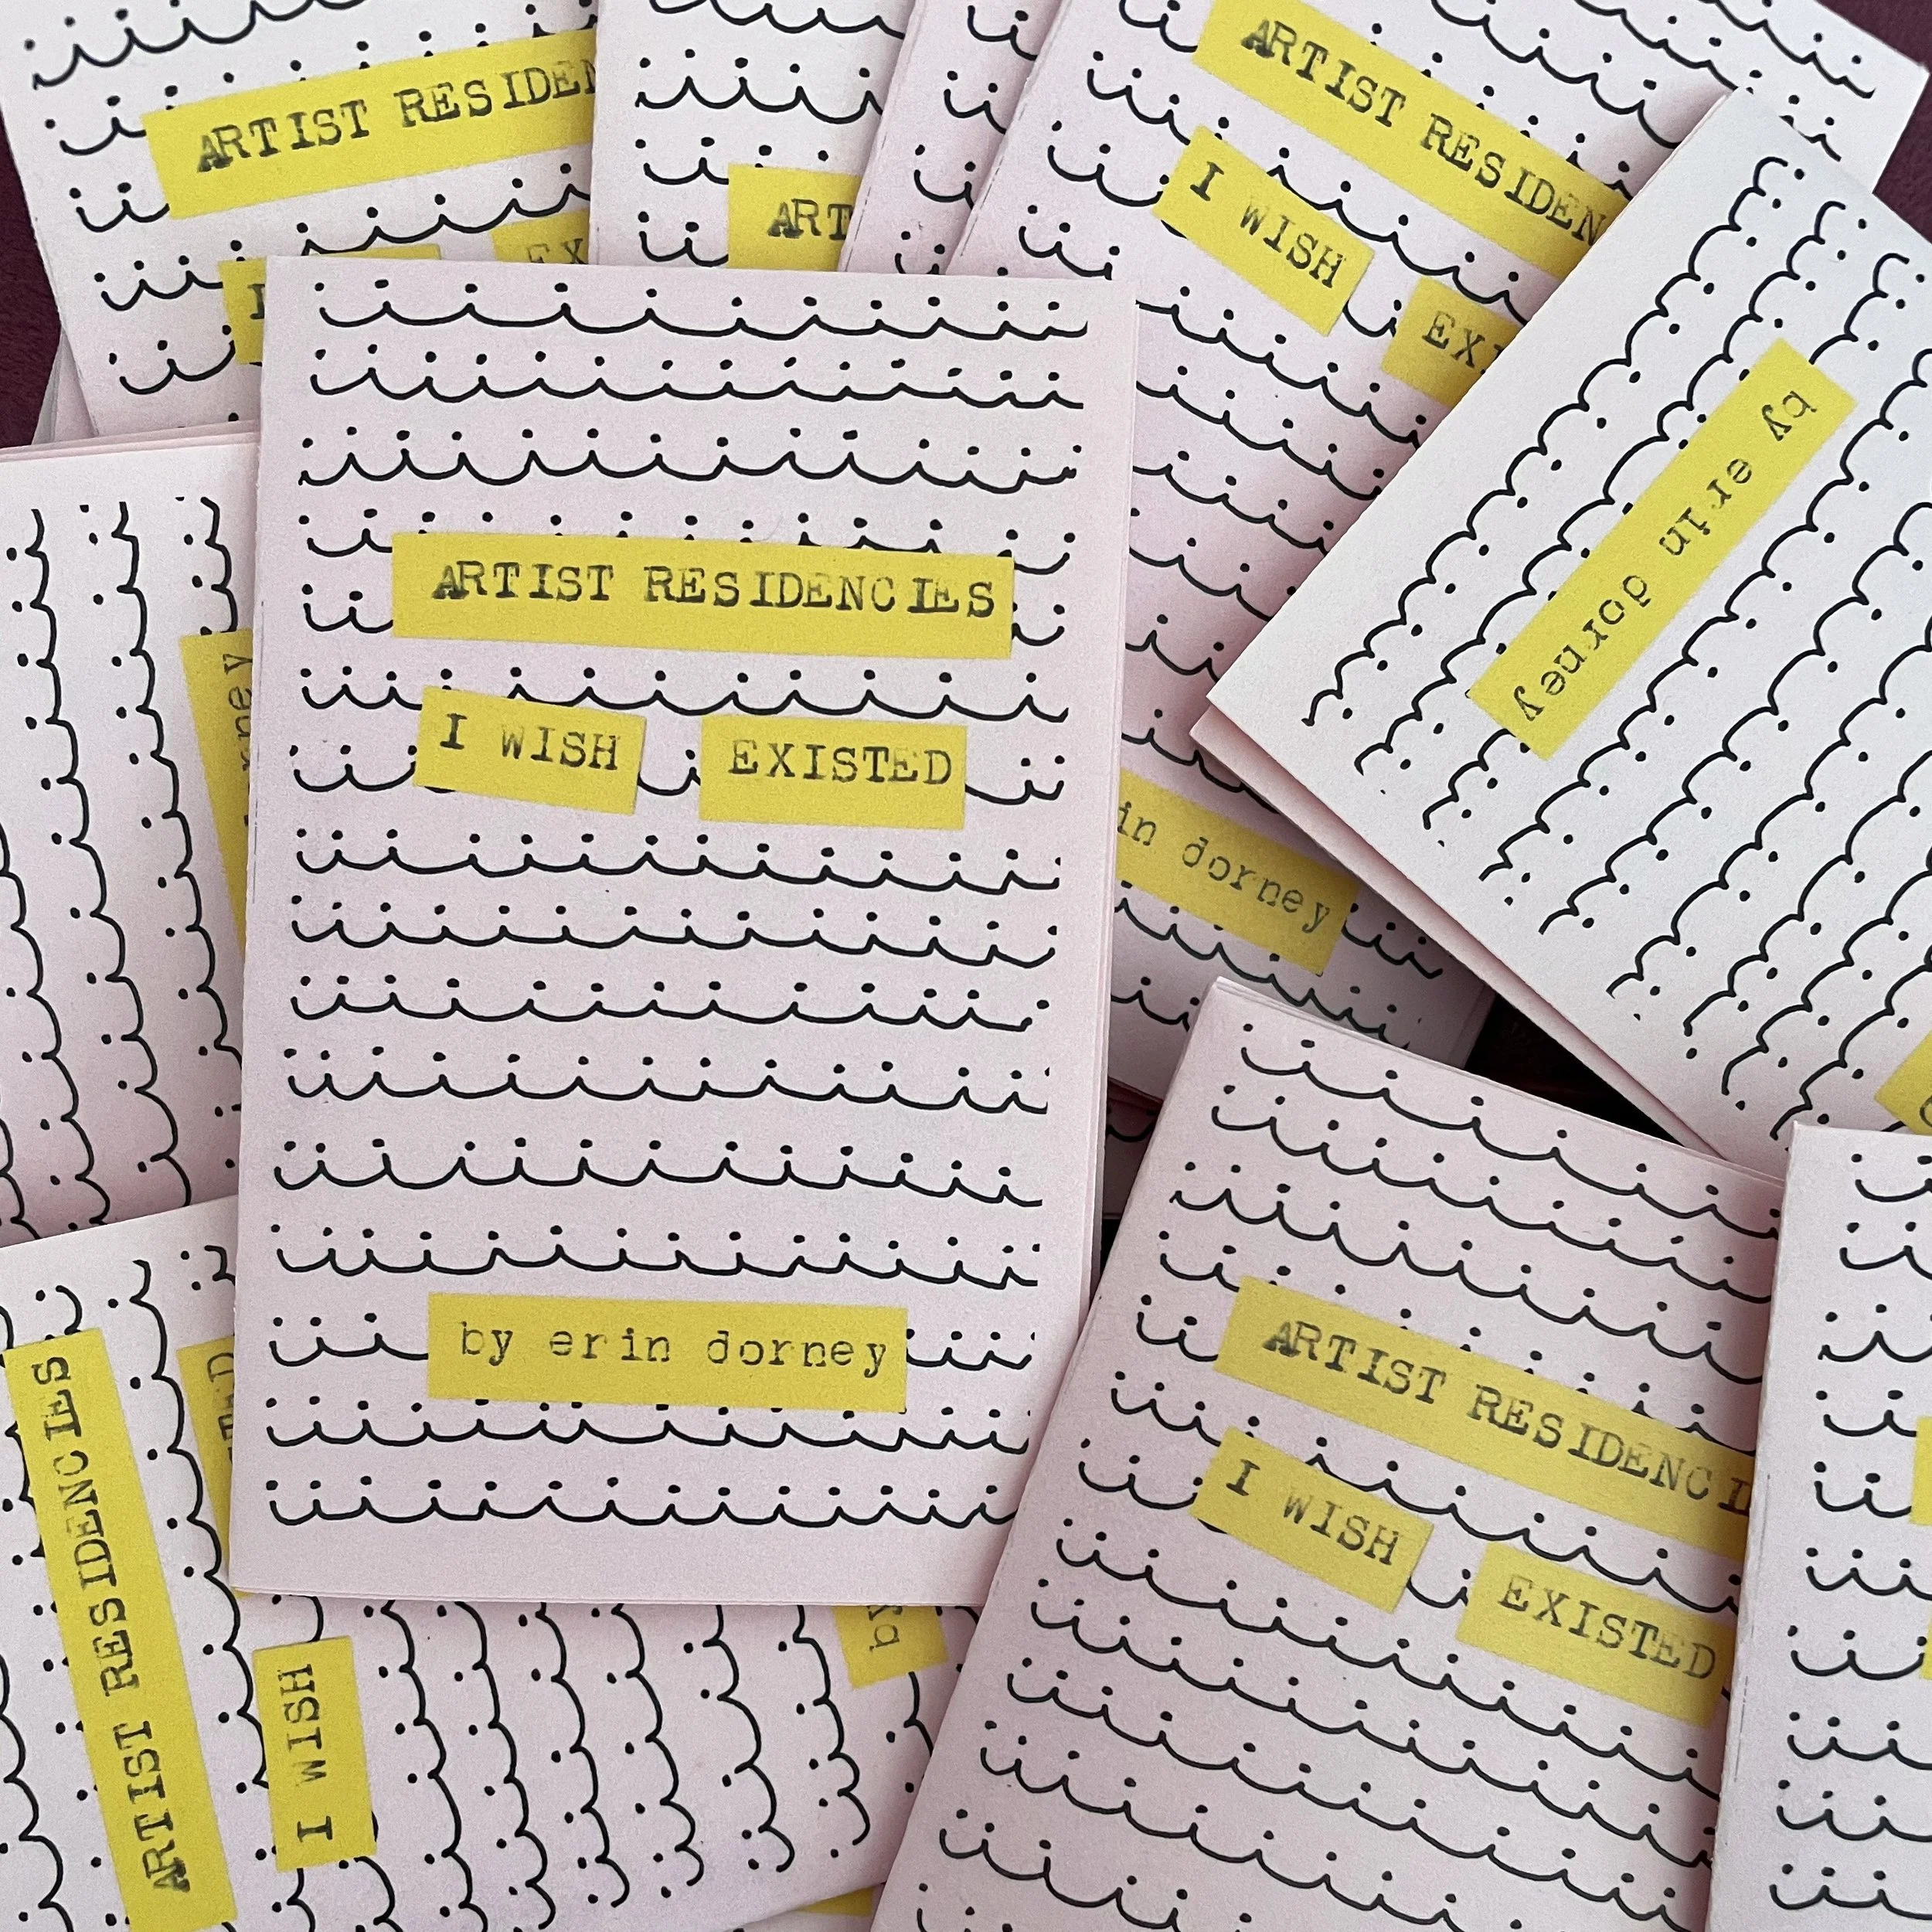 ARTIST RESIDEN
EX
I
ART
ARTIST RESIDEN
I WISH
EXI
by erin dorney
rney
ARTIST RESIDENCIES
I WISH EXISTED
by erin dorney
in dorney
ARTIST RESIDENCI
I WISH
EXISTED
ARTIST RESIDENCIES
I WISH
TED
by